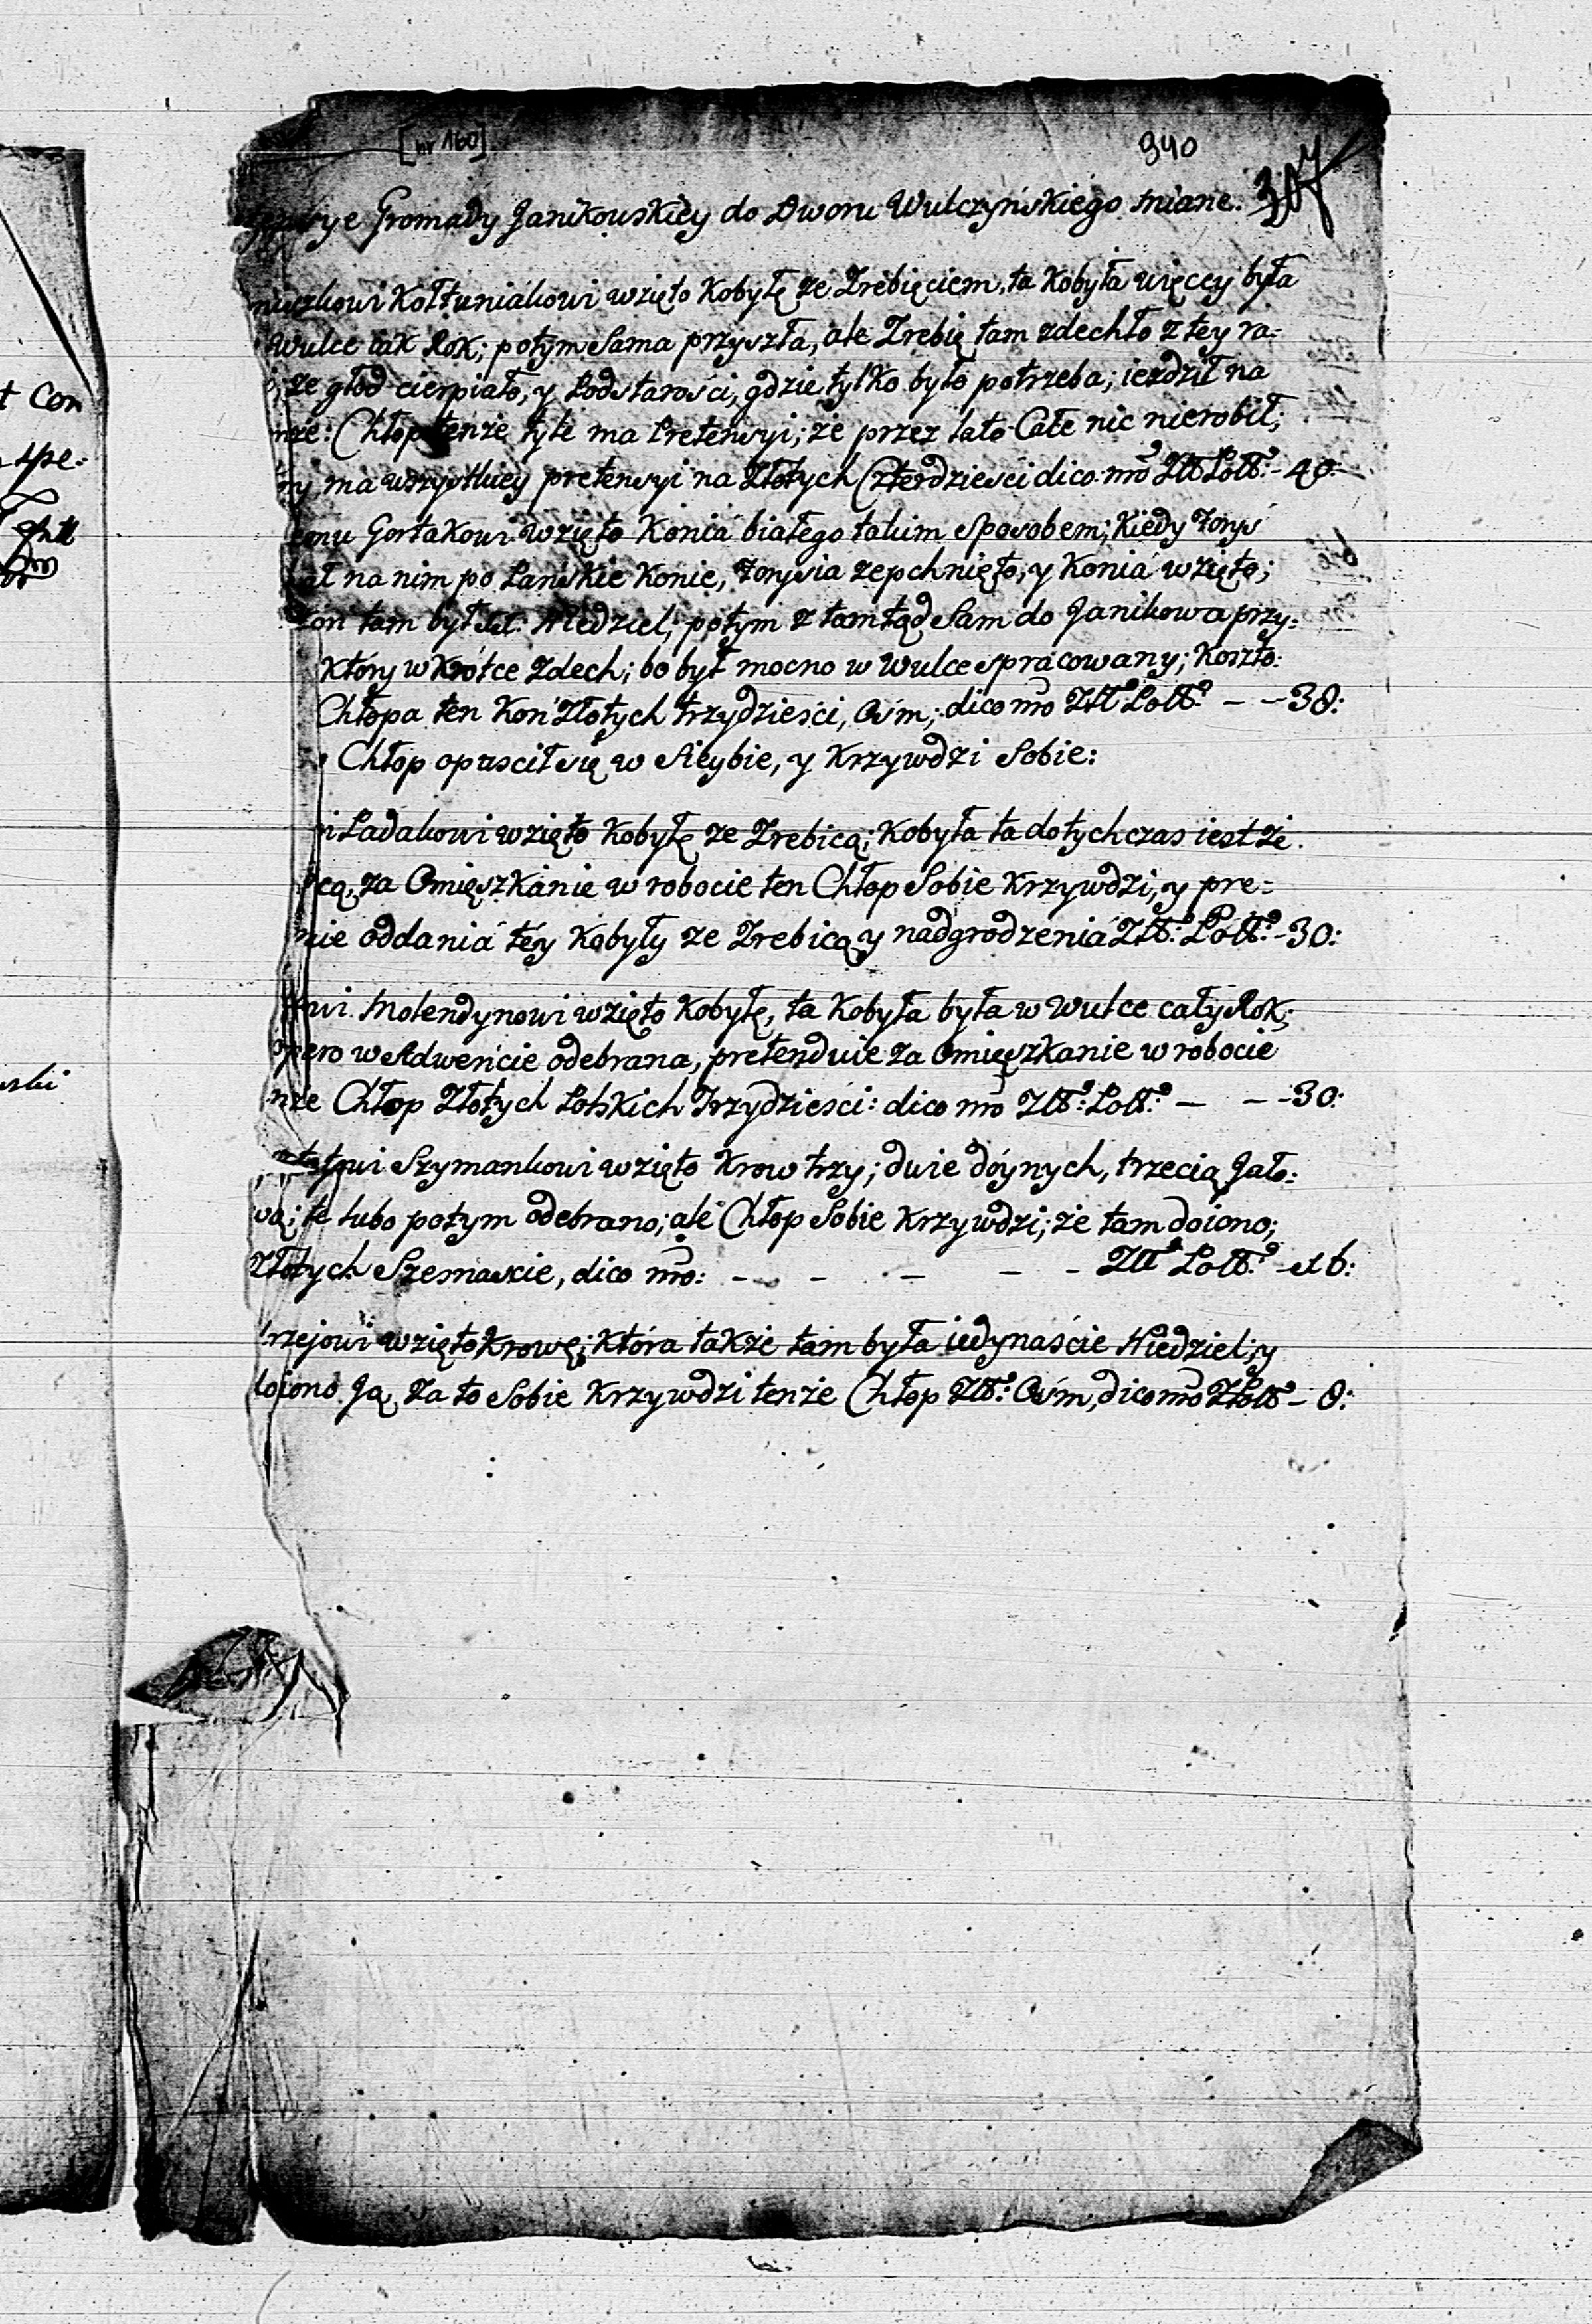 [nr 160]
340
307
Gromady Janikowskiey do Dworu Wulczyńskiego miane.
Kołtuniakowi wzięto Kobyłę ze Zrebięciem, ta Kobyła więcey była
Wulce iak Rok; potym Sama przyszła, ale Zrebię tam zdechło z tey ra-
że głod cierpiało, y Podstarości, gdzie tylko było potrzeba; iezdził na
nie: Chłop tenże tyle ma Pretensyi; że przez lato Całe nic nierobił;
ma wszystkiey pretensyi na Złotych Czterdziesci dico mo Złł Poll: - 40.
Gorlakowi wzięto Konia białego takim Sposobem; Kiedy Zoryś
na nim po Pańskie Konie, Zorysia zepchnięto, y Konia wzięto;
Koń tam był Niedziel; potym z tamtąd Sam do Janikowa przy-
który wkrótce zdech; bo był mocno w Wulce spracowany; Koszto:
Chłopa ten Koń Złotych trzydziesci, Ośm; dico mo Złł Poll: - - 38:
Chłop opuscił się w Sieybie, y Krzywdzi Sobie:
Ladakowi wzięto Kobyłę ze Zrebicą; Kobyła ta dotychczas iest ze
cą, za Omięszkanie w robocie ten Chłop Sobie Krzywdzi, y pre-
nie oddania téy Kobyły ze Zrebicą y nadgrodzenia Złł: Poll: - 30:
owi Molendynowi wzięto Kobyłę, ta Kobyła była w Wulce cały Rok;
pero w Adwencie odebrana, pretenduie za Omięszkanie w robocie
nże Chłop Złotych Polskich Trzydziesci: dico mo Złł: Poll: - - - 30:
Szymankowi wzięto Krow trzy; dwie dóynych, trzecią Jało:
wą; te lubo potym odebrano; ale Chłop Sobie Krzywdzi; że tam doiono;
Złotych Szesnascie, dico mo: - - - - - Złł Poll: - 16:
rzejowi wzięto Krowę; Która także tam była iedynaście Niedziel; y
doiono Ją, Za to Sobie Krzywdzi tenże Chłop Złł: Ośm, dico mo Złł Poll - 8:
t Con
spe-
wski